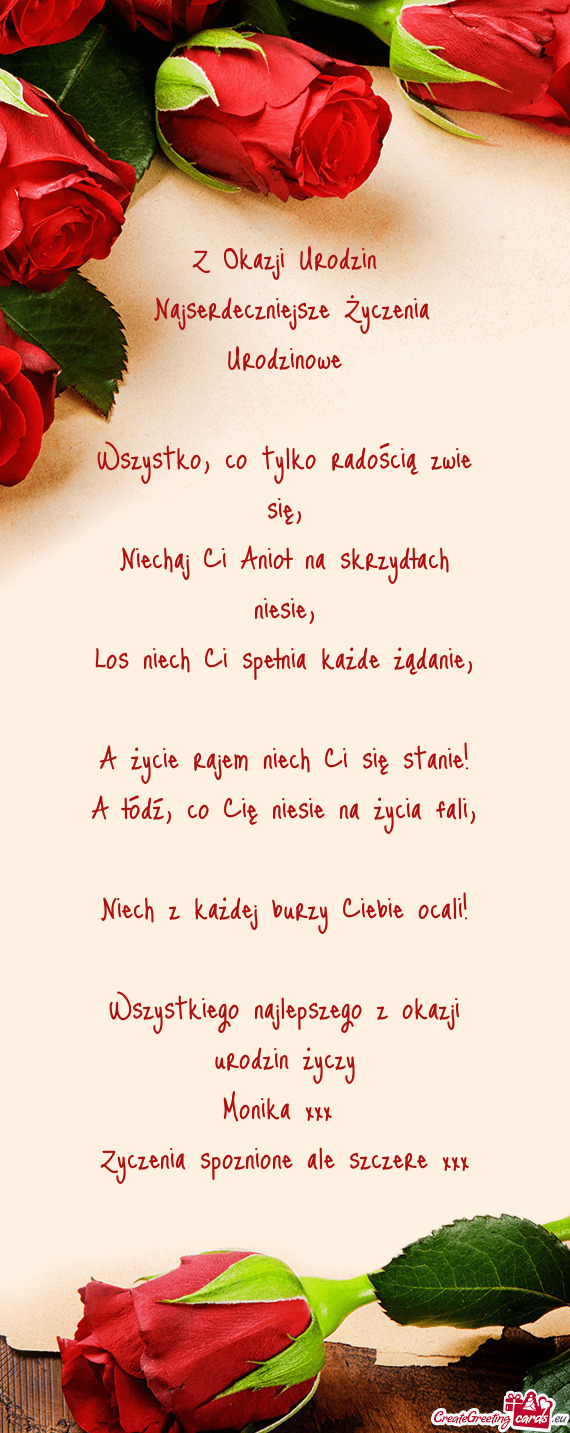 Z Okazji Urodzin
Najserdeczniejsze Życzenia
Urodzinowe
Wszystko, co tylko radością zwie
się,
Niechaj Ci Anioł na skrzydłach
niesie,
Los niech Ci spełnia każde żądanie,
A życie rajem niech Ci się stanie!
A łódź, co Cię niesie na życia fali,
Niech z każdej burzy Ciebie ocali!
Wszystkiego najlepszego z okazji
urodzin życzy
Monika xxx
Zyczenia spoznione ale szczere xxx
CreateGreeting cards .eu